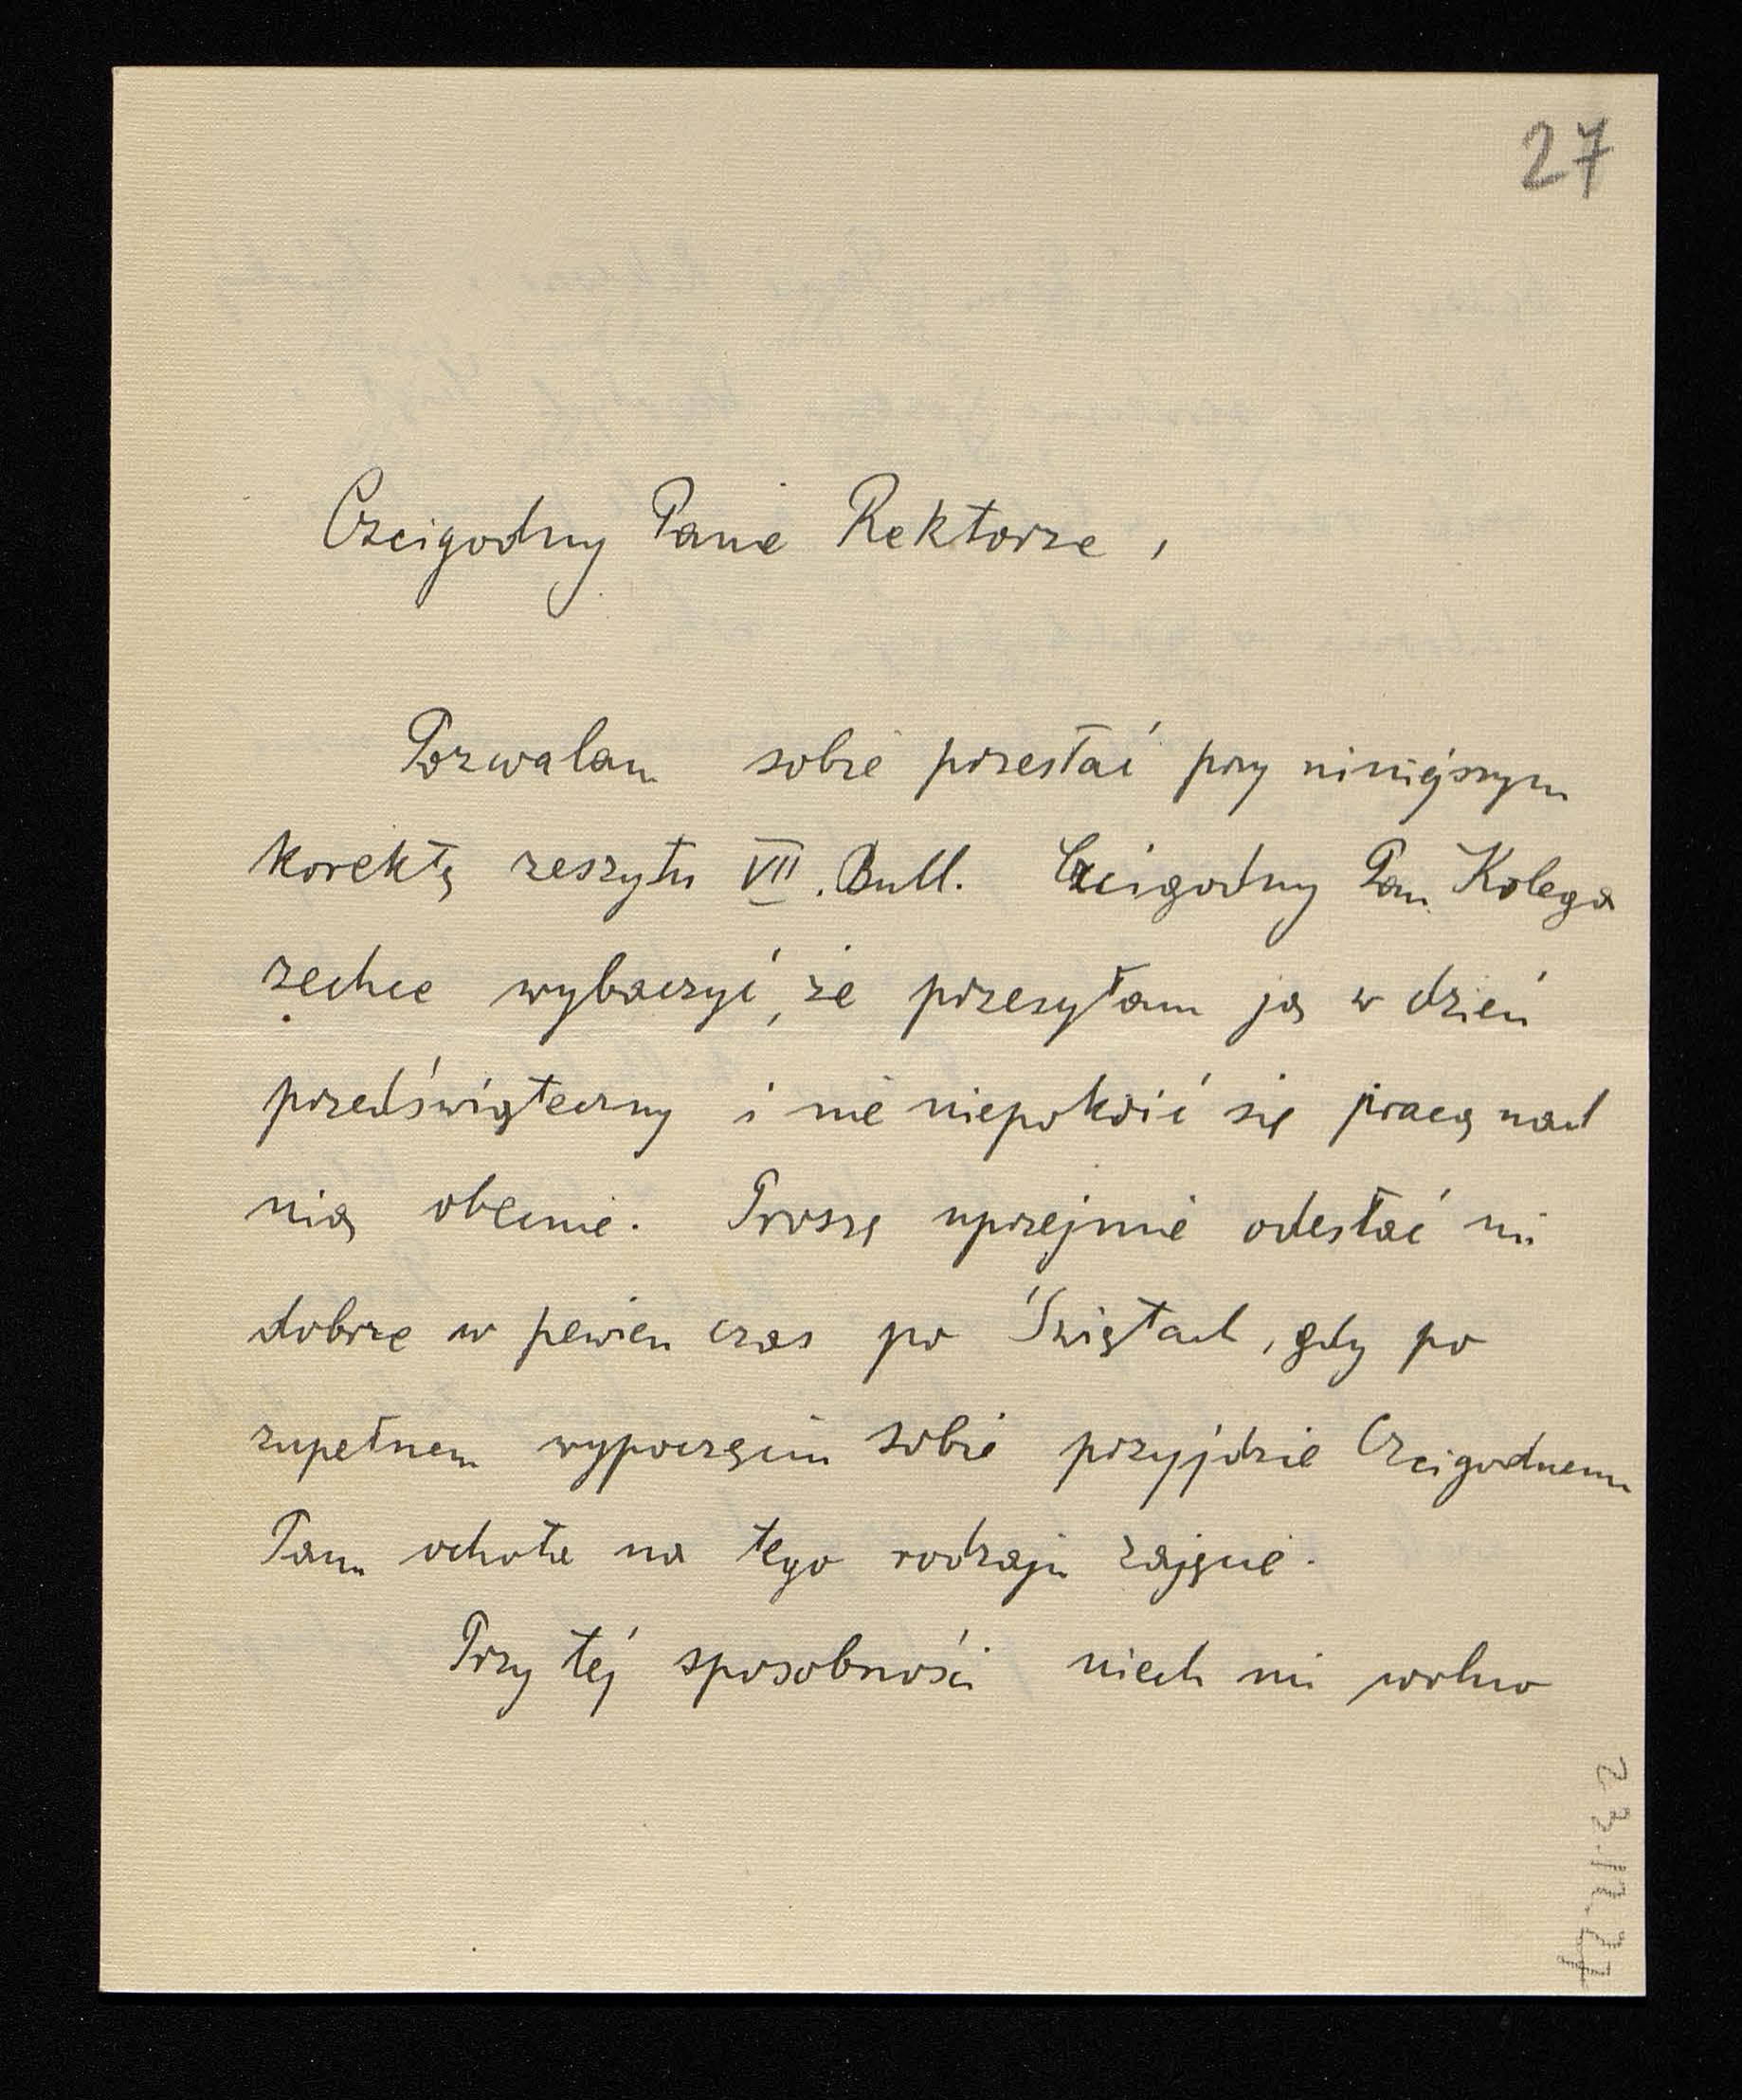 27
Czcigodny Panie Rektorze,
Pozwalam sobie przesłać przy niniejszym
korektę zeszytu VII. Bull. Czcigodny Pan Kolega
zechce wybaczyć, że przesyłam ją w dzień
przedświąteczny i nie niepokoić się pracą nad
nią obecnie. Proszę uprzejmie odesłać mi
dobrze w pewien czas po Świętach, gdy po
zupełnem wypoczęciu sobie przyjdzie Czcigodnemu
Panu ochota na tego rodzaju zajęcie.
Przy tej sposobności niech mi wolno